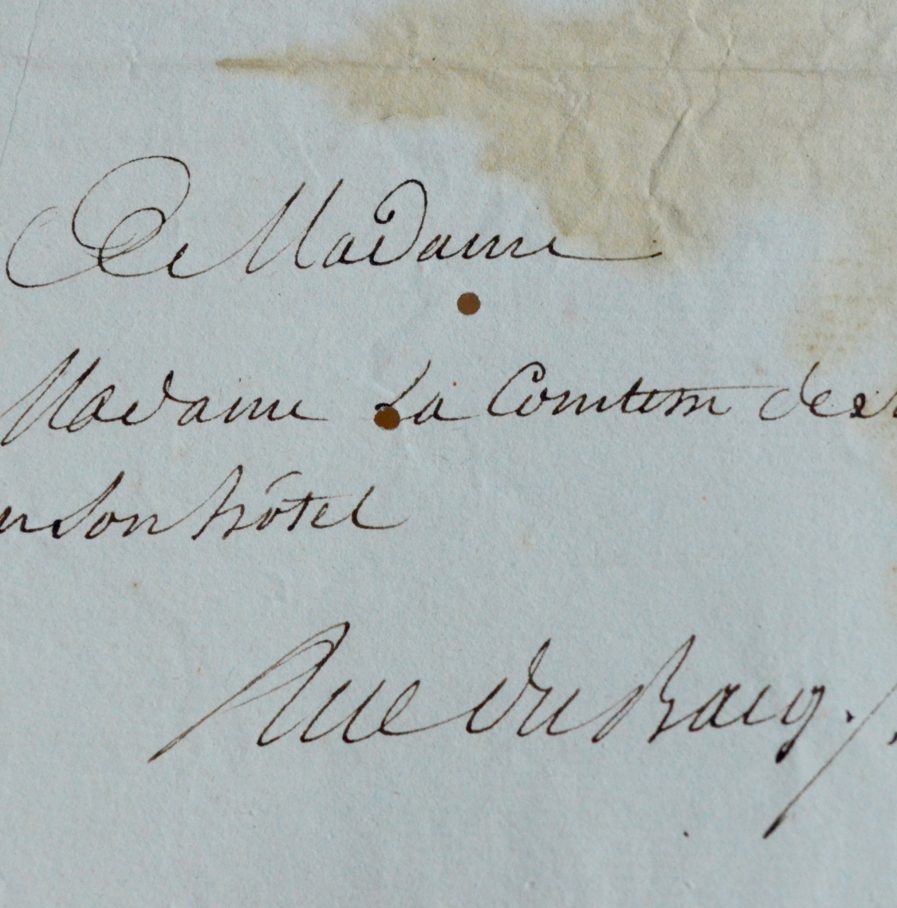 A Madame
Madame La Comtesse de
en Son hôtel
Rue du Bacq.